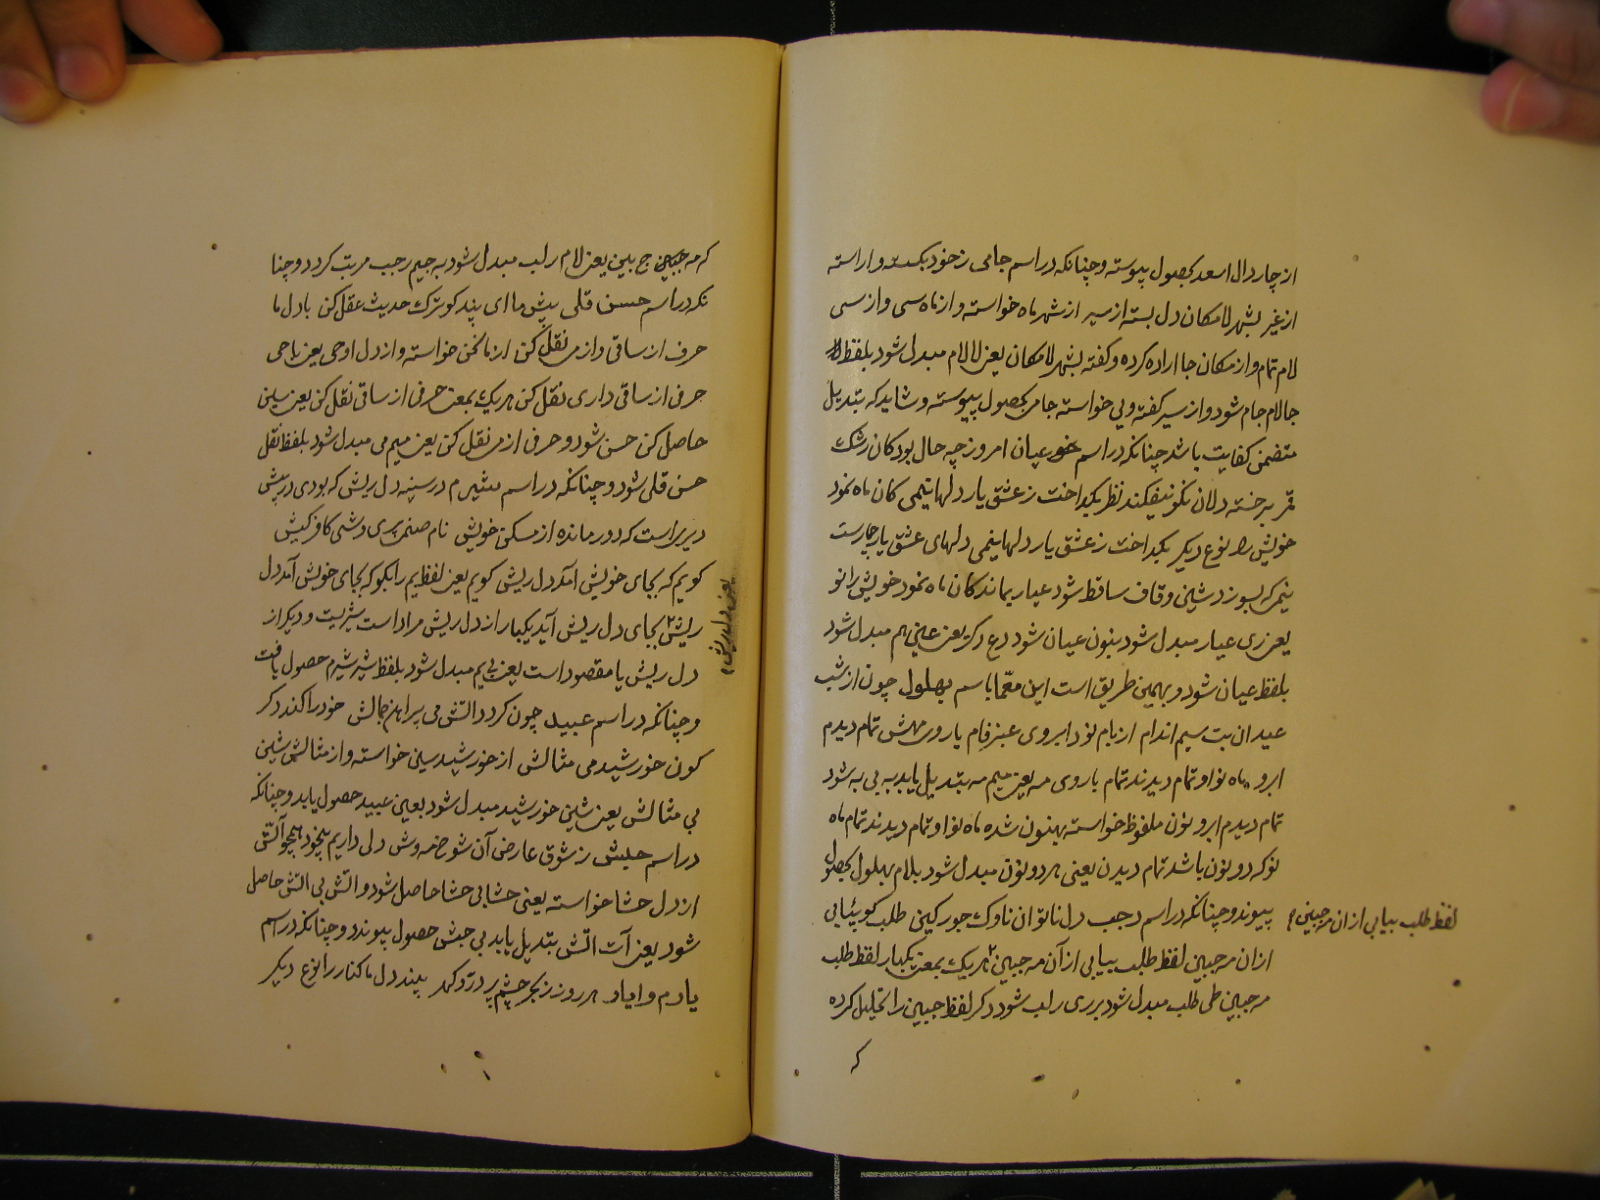 از چار دال اسعد بحصول پیوسته و چنانکه در اسم جامی ز خود بگسسته و اراسته
از غیر بشهر لامکان دل بسته از سیر از شهر ماه خواسته و از ماه سی و از سی
لام تمام و از مکان جا اراده کرده و گفته بشهر لامکان یعنی لا لام مبدل شود بلفظ
جا لام جام شود و از سیر گفته و بی خواسته جامی بحصول پیوسته و شاید که بتبدیل
متضمن کفایت باشد چنانکه در اسم عیان امروز چه حال بود کان رشک
قمر بر خسته دلان نکو نیفکند نظر بگداخت ز عشق یار دلها نیمی کان ماه نمود
خویش را نوع دیگر بگداخت ز عشق یار دلها نیمی دلهای عشق یار چارست
نیمی که بسوزد شین و قاف ساقط شود عیار بماند کان ماه نمود خویش را نو
یعنی ری عیار مبدل شود بنون عیان شود دع دگر یعنی عین هم مبدل شود
بلفظ عیان شود و بهمین طریق است این معما باسم بهلول چون از شب
عید ان بت سیم اندام از بام نود ابروی عنبر فام با روی مهش تمام دیدم
ابرو ماه نو او تمام دیدند تمام با روی مه یعنی میم مه بتبدیل یابد به بی به شود
تمام دیدم ابرو نون ملفوظ خواسته بهنون شده ماه نو او تمام دیدند تمام ماه
نو که دو نون باشد تمام دیدن یعنی هر دو نون مبدل شود بلام بهلول بحصول
پیوندد چنانکه در اسم رجب دل ناتوان ناوک جور کین طلب کو بیابی
ازان مه جبین لفظ طلب بیابی از آن مه جبین ۲ هر یک بمعنی یکبار لفظ طلب
مه جبین طی طلب مبدل شود بر ری رلب شود دگر لفظ جبین را تحلیل کرده
که
لفظ طلب بیابی ازان مه جبین
که مه جبین ج بین یعنی لام رلب مبدل شود به جیم رجب مرتب گردد و چنا
نکه در اسم حسن قلی پیش ما ای پند گو ترک حدیث عقل کن با دل ما
حرف از ساقی و از می نقل کن از ما نحن خواسته و از دل اوحی یعنی با حی
حرفی از ساقی داری نقل کن هر یک بمعنی حرفی از ساقی نقل کن یعنی سین
حاصل کن حسن شود و حرفی از می نقل کن یعنی میم می مبدل شود بلفظ نقل
حسن قلی شود و چنانکه در اسم شیرم در سینه دل ریش که بودی در پیش
دیر است که دور مانده از مسکن خویش نام صنمی پری وشی کافر کیش
گویم که بجای خویش آمد دل ریش گویم یعنی لفظ یم را بگو که بجای خویش آمد دل
ریش ۲ بجای دل ریش آید یکبار از دل ریش مراد است شریت و دیگر از
دل ریش یا مقصود است یعنی بیم مبدل شود بلفظ شر شیرم حصول یافت
و چنانکه در اسم عبید چون گردد آتش می پیراهن جمالش خود را کند دگر
گون خورشید می مثالش از خورشید سینی خواسته و از مثالش شین
بی مثالش یعنی شین خورشید مبدل شود بعین عبید حصول یابد و چنانکه
در اسم حبش ز شوق عارض آن شوخ مه وش دلی داریم بیخود همچو آتش
از دل حشا خواسته یعنی حشا بی حشا حاصل شود و آتش بی اتش حاصل
شود یعنی آت اتش بتبدیل یابد بی حبش حصول پیوندد و چنانکه در اسم
یادم و ایاد هر روز ز بحر چشم پر در و گهر بیند دل ما کنار را نوع دیگر
یعنی دل ریش